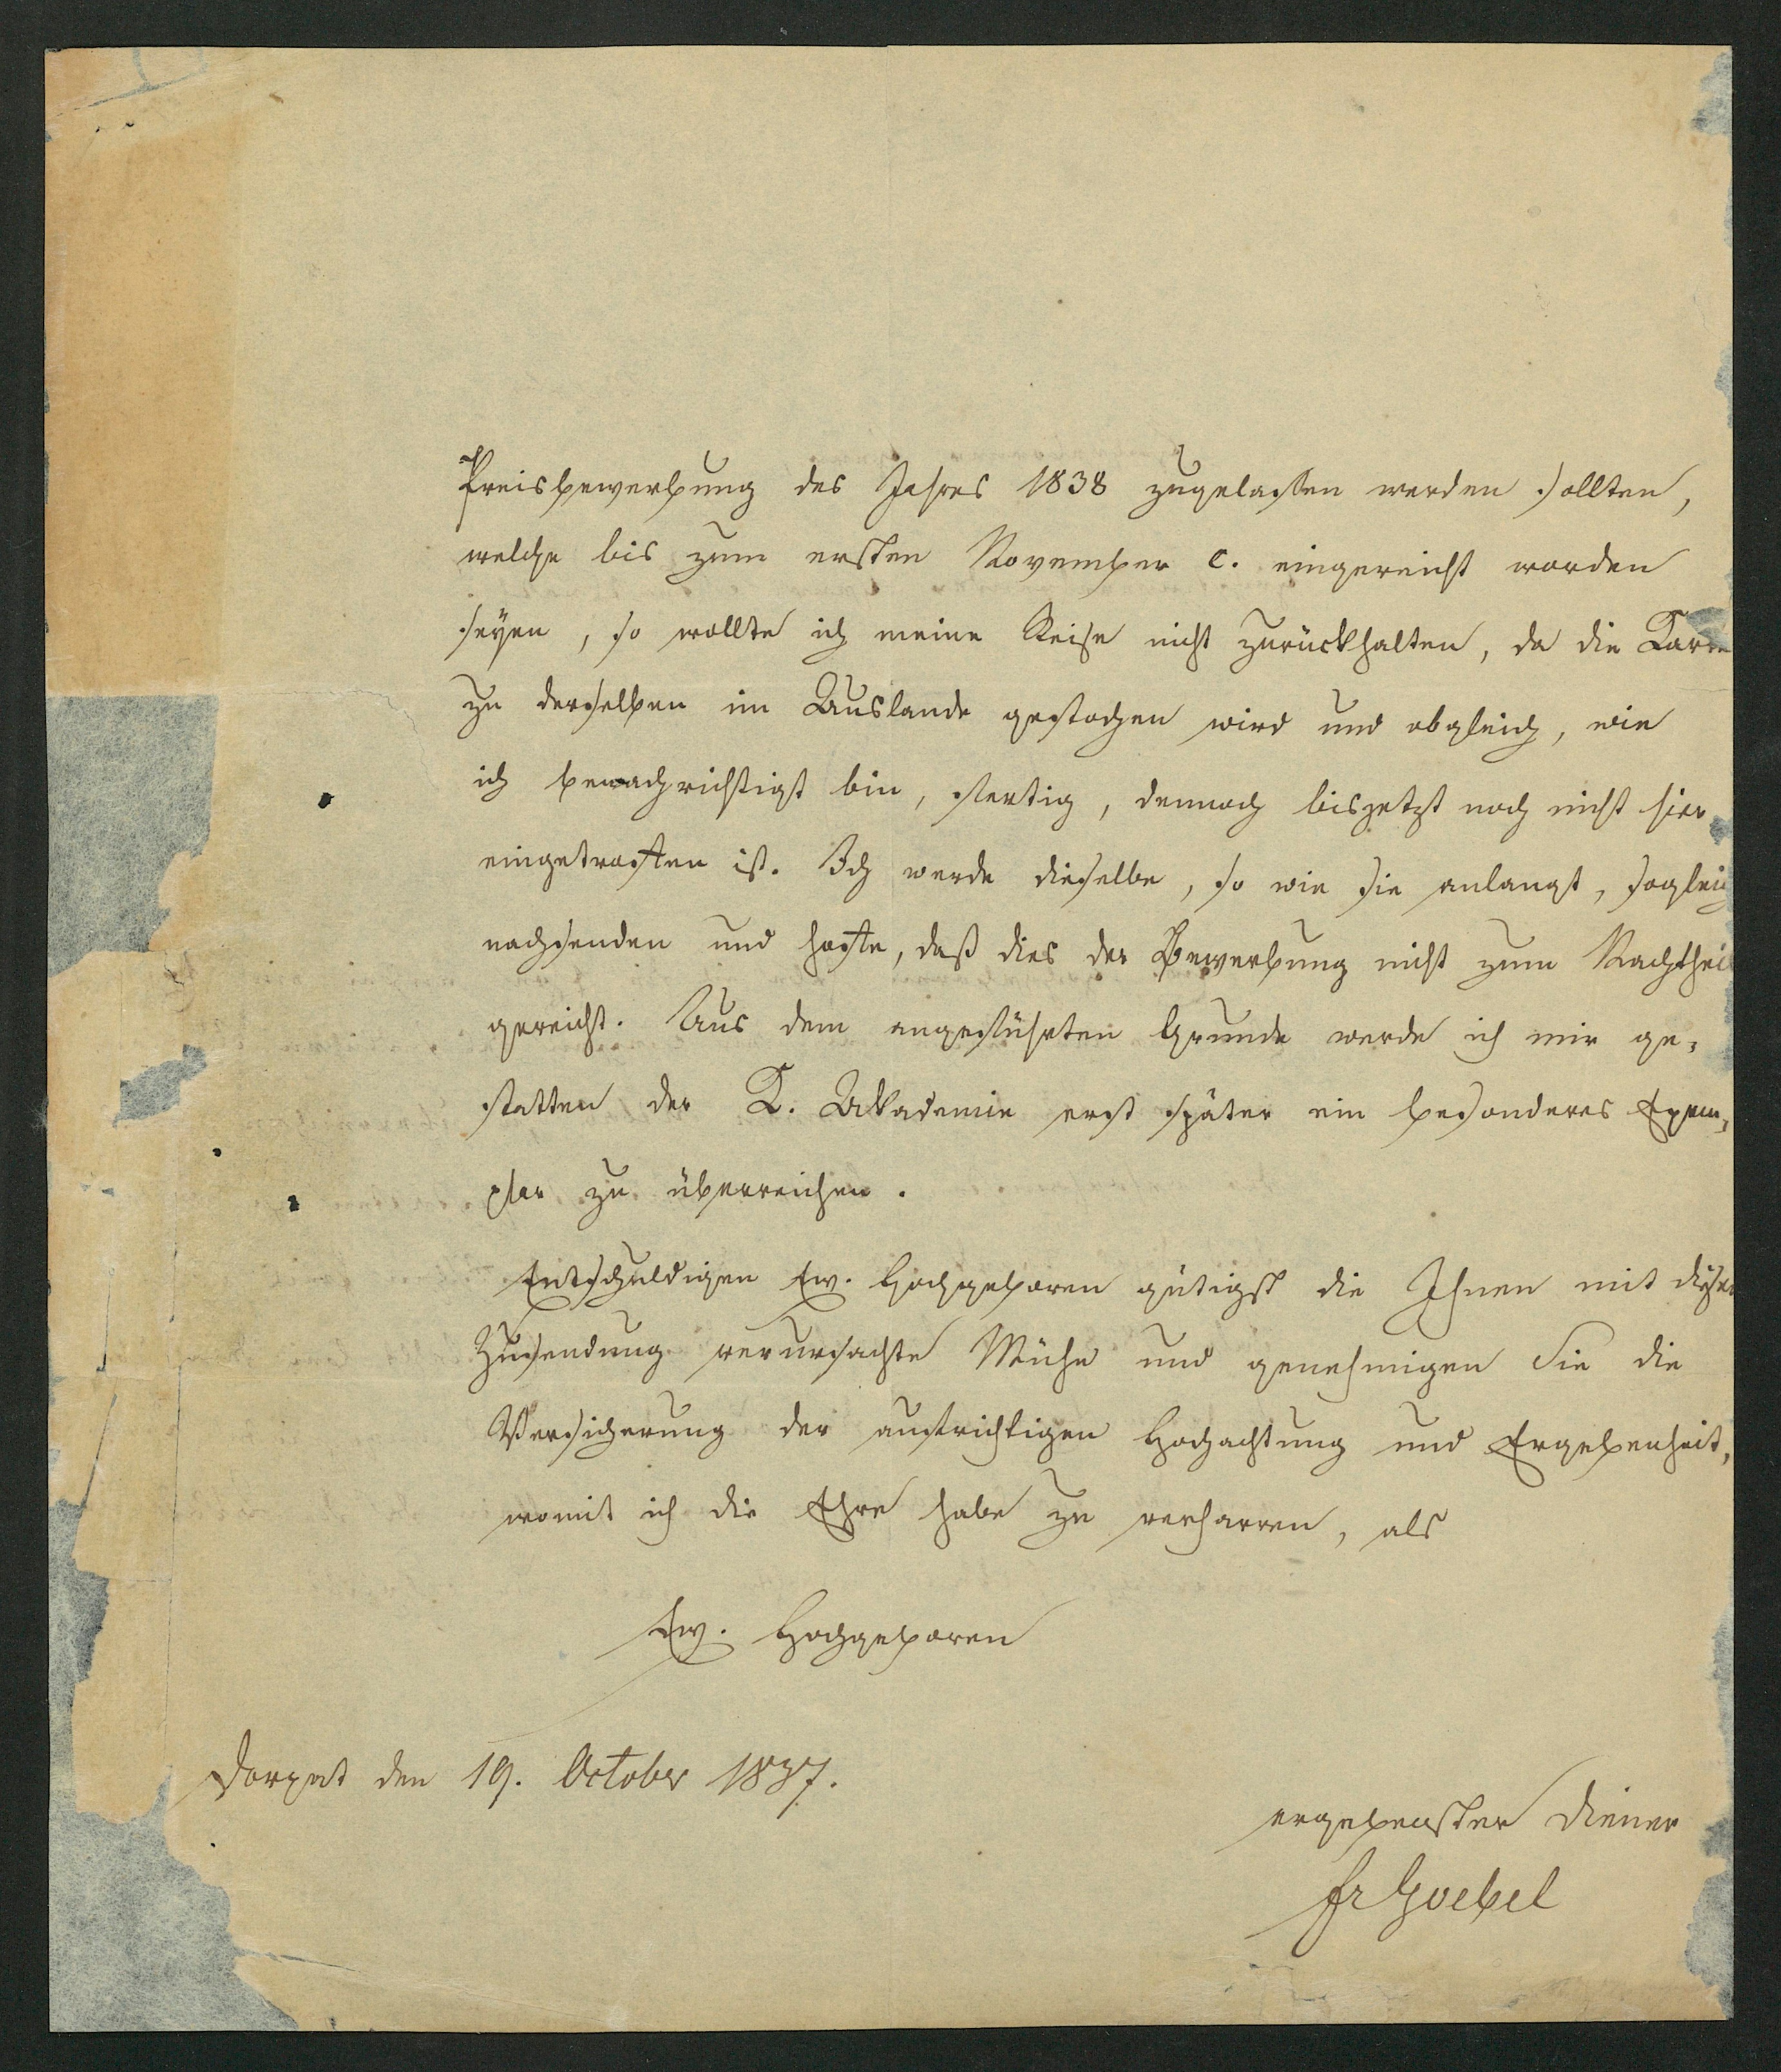 Preisbewerbung des Jahres 1838 zugelassen werden sollten,
welche bis zum ersten November c. eingereicht worden
seyen, so wollte ich meine Reise nicht zurückhalten, da die
zu derselben im Auslande gestochen wird und obgleich, wie
ich benachrichtigt bin, fertig, dennoch bisjetzt noch nicht hier
eingetroffen ist. Ich werde dieselbe, so wie sie anlangt, sogleich
nachsenden und hoffe, daß dies der Bewerbung nicht zum Nachtheil
gereicht. Aus dem angeführten Grunde werde ich mir ge-
statten der K. Akademie erst später ein besonderes Exem-
plar zu überreichen.
Entschuldigen Ew. Hochgeboren gütigst die Ihnen mit dieser
Zusendung verursachte Mühe und genehmigen Sie die
Versicherung der aufrichtigen Hochachtung und Ergebenheit,
womit ich die Ehre habe zu verharren, als
Ew. Hochgeboren
Dorpat den 19. October 1837.
ergebenster Diener
Fr Goebel